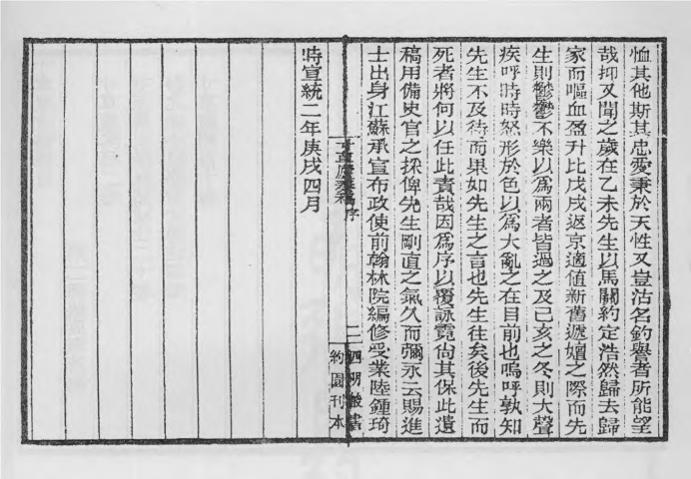 恤其他斯其忠愛秉於天性又豈沽名釣譽者所能望
哉抑又聞之歲在乙未先生以馬關約定浩然歸去歸
家而嘔血盈升比戊戌返京適值新舊遞嬗之際而先
生則鬱鬱不樂以為兩者皆過之及己亥之冬則大聲
疾呼時時怒形於色以為大亂之在目前也嗚呼孰知
先生不及待而果如先生之言也先生往矣後先生而
死者將何以任此責哉因為序以覆詠霓尚其保此遺
稿用備史官之採俾先生剛直之氣久而彌永云賜進
士出身江蘇承宣布政使前翰林院編修受業陸鍾琦
時宣統二年庚戌四月
序
二
四明叢書
約園刊本